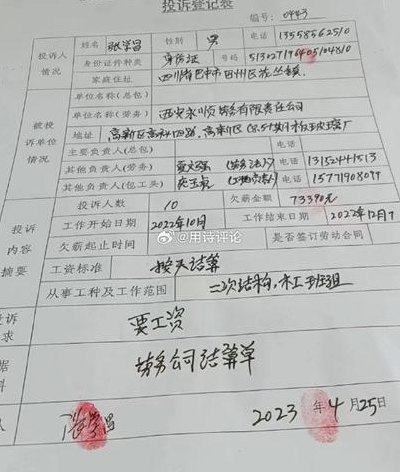 投诉登记表
编号:0443
投诉人情况 姓名 张学昌 性别 男 电话 13558562510
身份证件种类 身份证 号码 513027196405104810
家庭住址 四川省巴中市巴州区
被投诉单位情况 单位名称(总包)
单位名称(劳务) 西安永顺劳务有限责任公司
地址 高新区
主要负责人(总包) 电话
其他负责人(劳务) (劳务法人) 电话 13152441513
其他负责人(包工头) 电话 15771908099
投诉内容摘要 投诉人数 10 欠薪金额 73390元
工作开始日期 2022年10月 工作结束日期 2022年12月
欠薪起止时间 是否签订劳动合同
工资标准 按天结算
从事工种及工作范围 二次结构,木工班组
投诉
求 要工资
据
料 劳务公司结算单
人 张学昌 2023年4月25日
@用诗评论